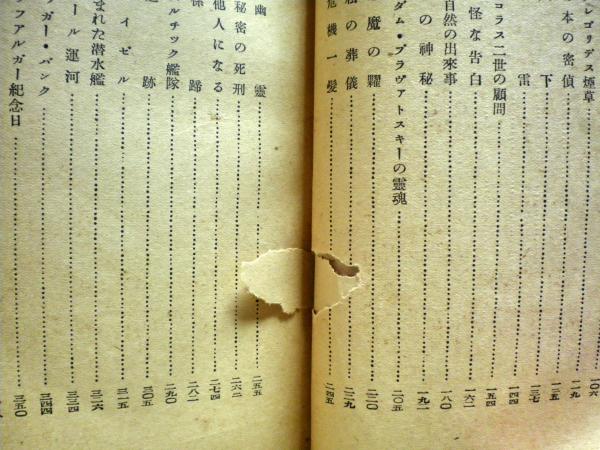 レゴリデス煙草 一〇六
本の密偵 一一九
下 一二五
雷 一三七
コラス二世の顧問 一四四
怪な告白 一五四
自然の出來事 一六二
の神秘 一八〇
ダム・ブラヴァトスキーの靈魂 一九二
魔の糶 二〇五
の葬儀 二二〇
危機一髮 二三九
二四五
幽靈 二五五
秘密の死刑 二六二
他人になる 二七四
蹄 二八二
ルチック艦隊 二九〇
跡 三〇五
イゼル 三一五
まれた潜水艦 三二六
ール運河 三三四
ガー・バンク 三四四
ファルガー紀念日 三五〇